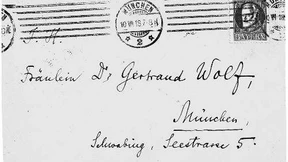 MÜNCHEN
2
BAYERN
Fräulein Dr Gertraud Wolf,
München,
Schwabing, Seestrasse 5.